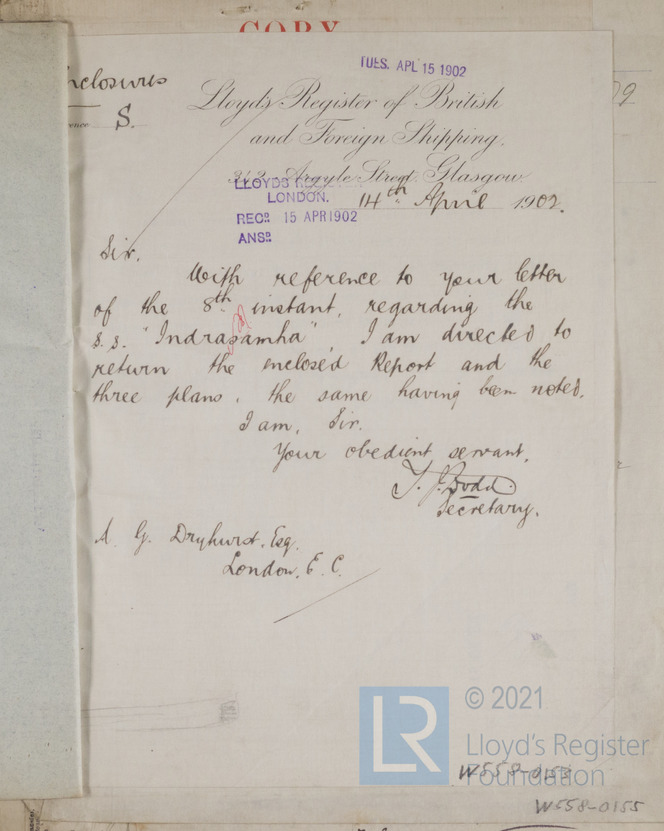 COPY
TUES. APL 15 1902
nclosures
S.
Lloyd's Register of British
and Foreign Shipping,
342, Argyle Street, Glasgow
LLOYDS REGISTER
LONDON.
REC^D. 15 APR 1902
ANS^D.
14th April 1902.
Sir.
With reference to your letter
of the 8th instant, regarding the
s.s. "Indrasamha", I am directed to
return the enclosed Report and the
three plans, the same having been noted.
I am, Sir.
Your obedient servant.
T. J. Dodd.
Secretary.
A. G. Dryhurst, Esq.
London, E. C.
© 2021
LR
Lloyd's Register
Foundation
W558-0153
W558-0155